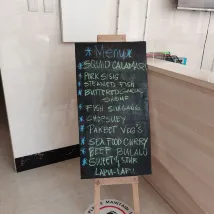 Menu
SQUID CALAMARI
PORK SISIG
STEAMED FISH
BUTTERED GARLIC
SHRIMP
FISH SINIGANG
CHOPSUEY
PAKBET VEG'S
SEA FOOD CURRY
BEEF BULALO
SWEETY STNK
LAPU-LAPU